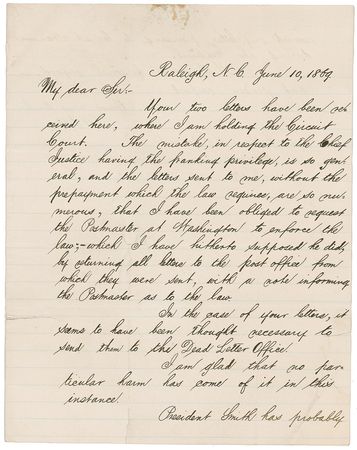 Raleigh, N.C. June 10, 1869
My dear Sir:-
Your two letters have been re-
ceived here, where I am holding the Circuit
Court. The mistake, in respect to the Chief
Justice having the franking privilege, is so gen-
eral, and the letters sent to me, without the
prepayment which the law requires, are so nu-
merous, that I have been obliged to request
the Postmaster at Washington to enforce the
law;-which I have hitherto supposed he did,
by returning all letters to the post office from
which they were sent, with a note informing
the Postmaster as to the law.
In the case of your letters, it
seems to have been thought necessary to
send them to the Dead Letter Office.
I am glad that no par-
ticular harm has come of it in this
instance.
President Smith has probably